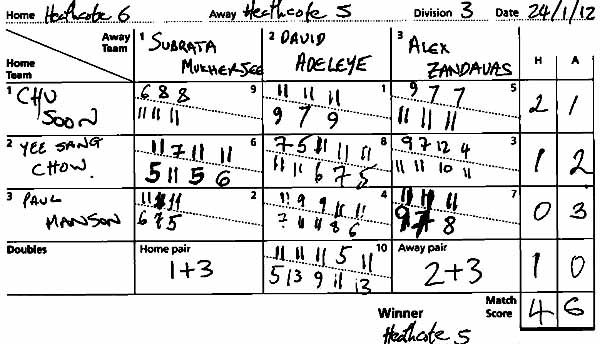 Home Heathcote 6 Away Heathcote 5 Division 3 Date 24/1/12
Away Team
Home Team
1 SUBRATA MUKHERJEE
2 DAVID ADELEYE
3 ALEX ZANDAVAS
H A
1 CHU SOON
6 8 8 9
11 11 11
11 11 11 1
9 7 9
9 7 7 5
11 11 11
2 1
2 YEE SANG CHOW.
11 7 11 11 6
5 11 5 6
7 5 11 11 11 8
11 11 6 7 5
9 7 12 4 3
11 11 10 11
1 2
3 PAUL MANSON
11 11 11 2
6 7 5
11 9 9 11 11 4
7 11 11 8 6
11 11 11 7
9 7 8
0 3
Doubles
Home pair
1+3
11 11 11 5 11 10
5 13 9 11 13
Away pair
2+3
1 0
Winner
Heathcote 5
Match Score
4 6